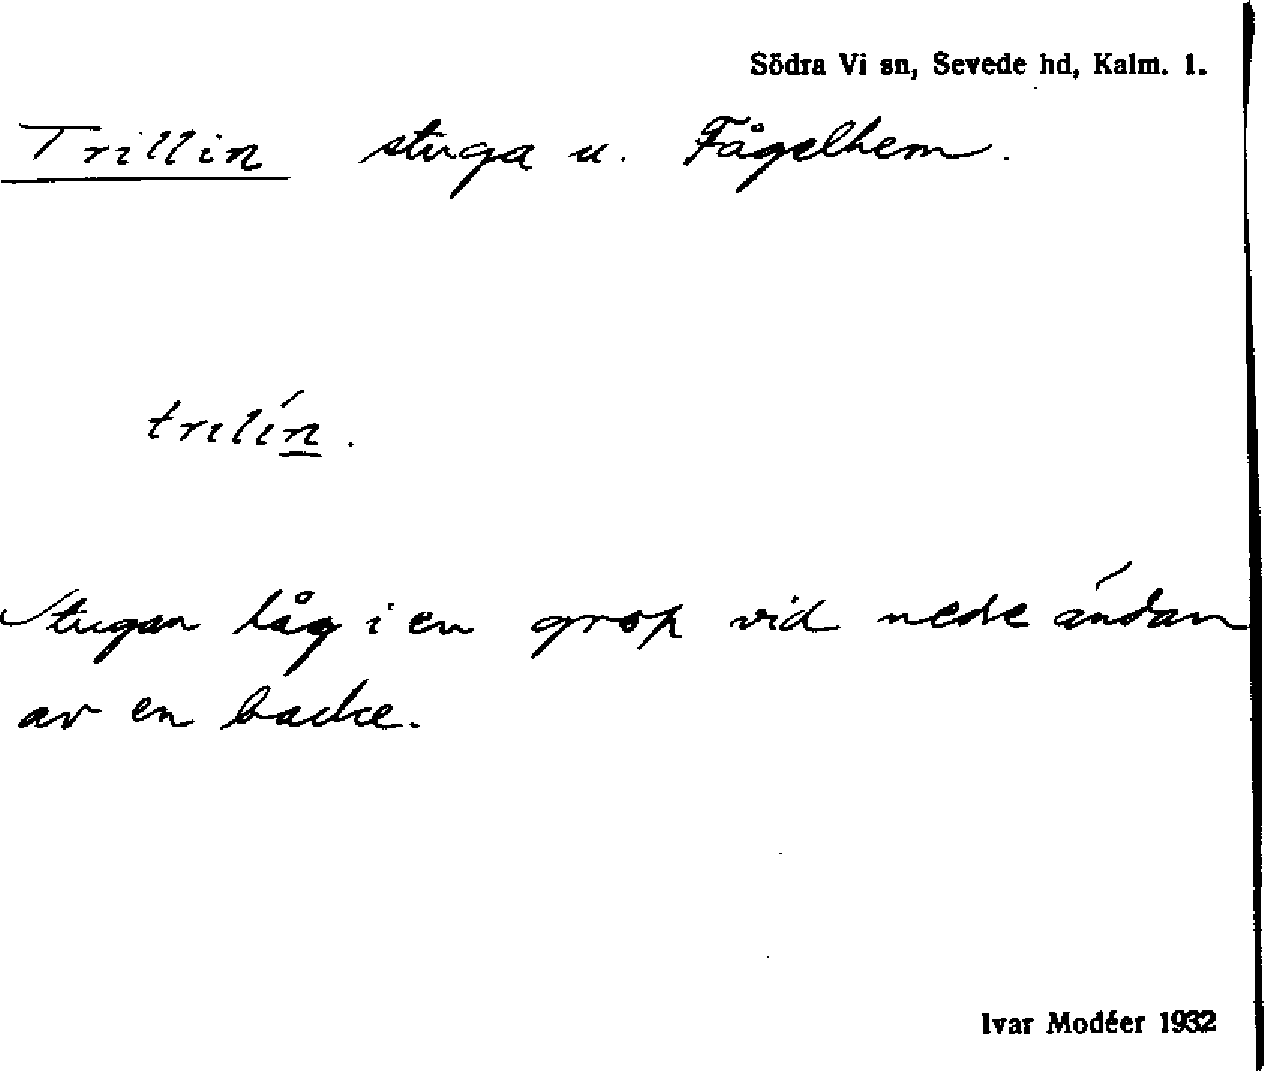 Södra Vi sn, Sevede hd, Kalm. l.
Trillin stuga u. Fågelhem.
trilín.
Stugan låg i en grop vid nedre ändan
av en backe.
Ivar Modéer 1932